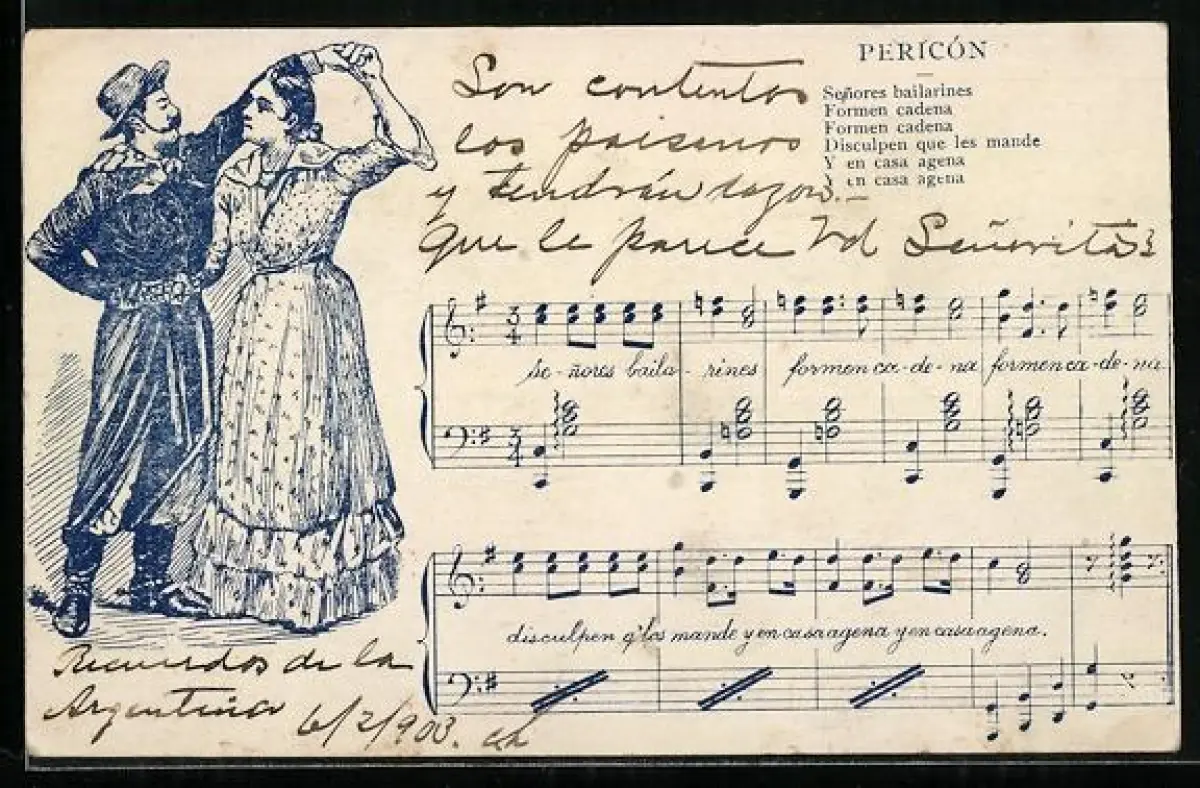 PERICÓN
Señores bailarines
Formen cadena
Formen cadena
Disculpen que les mande
Y en casa agena
Y en casa agena
Son contentos
los paisanos
y tendrán razon.—
Que le parece Vd Señorita?
3 4
se-ñores baila-rines formen ca-de-na formen ca-de-na
3 4
disculpen q' les mande y en casa agena y en casa agena.
Recuerdos de la
Argentina
6/2/903.